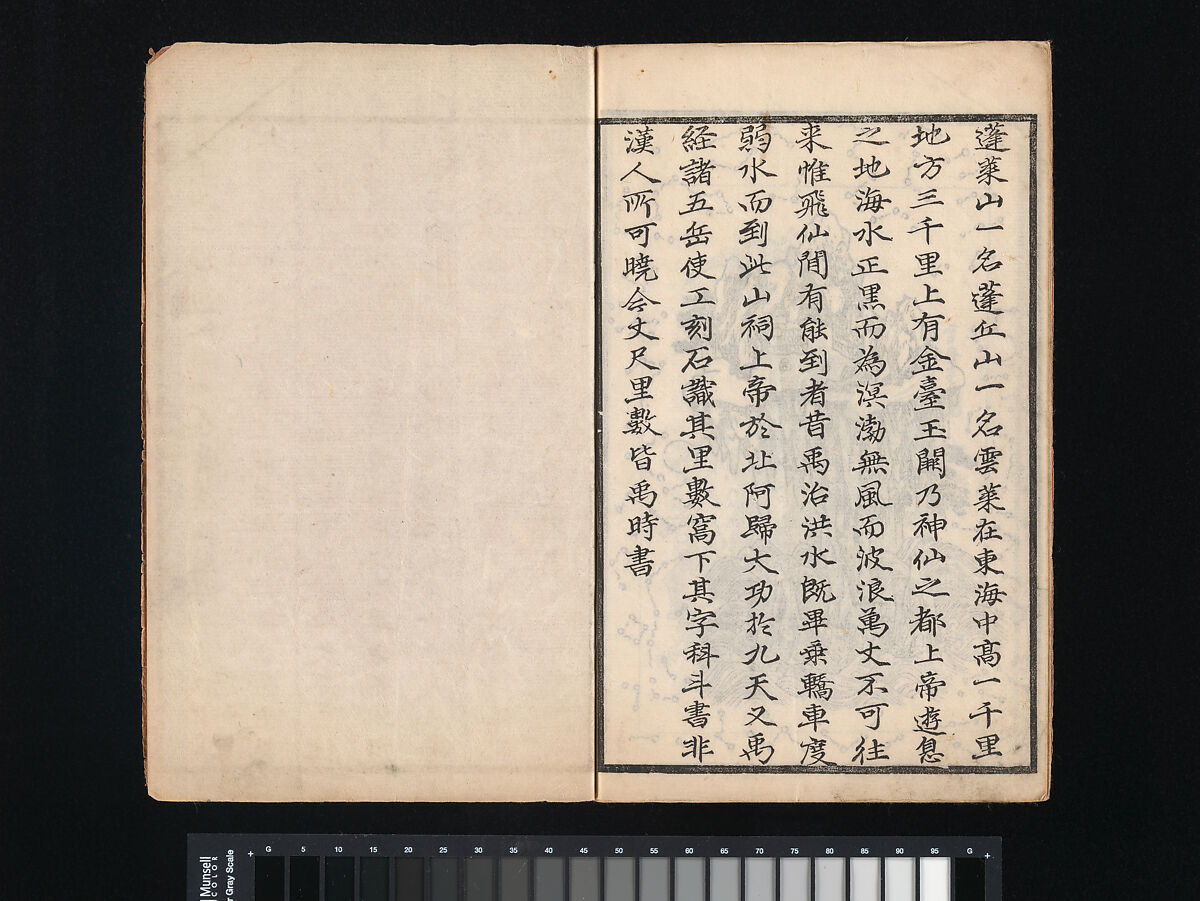 蓬萊山一名蓬丘山一名雲萊在東海中髙一千里
地方三千里上有金臺玉闕乃神仙之都上帝遊息
之地海水正黒而為溟渤無風而波浪萬丈不可往
来惟飛仙間有能到者昔禹治洪水既畢乗轎車度
弱水而到此山祠上帝於北阿歸大功於九天又禹
経諸五岳使工刻石識其里數窩下其字科斗書非
漢人所可曉今丈尺里數皆禹時書
Munsell
COLOR
r Gray Scale
G 5 10 15 20 25 30 35 40 45 50 55 60 65 70 75 80 85 90 95 G